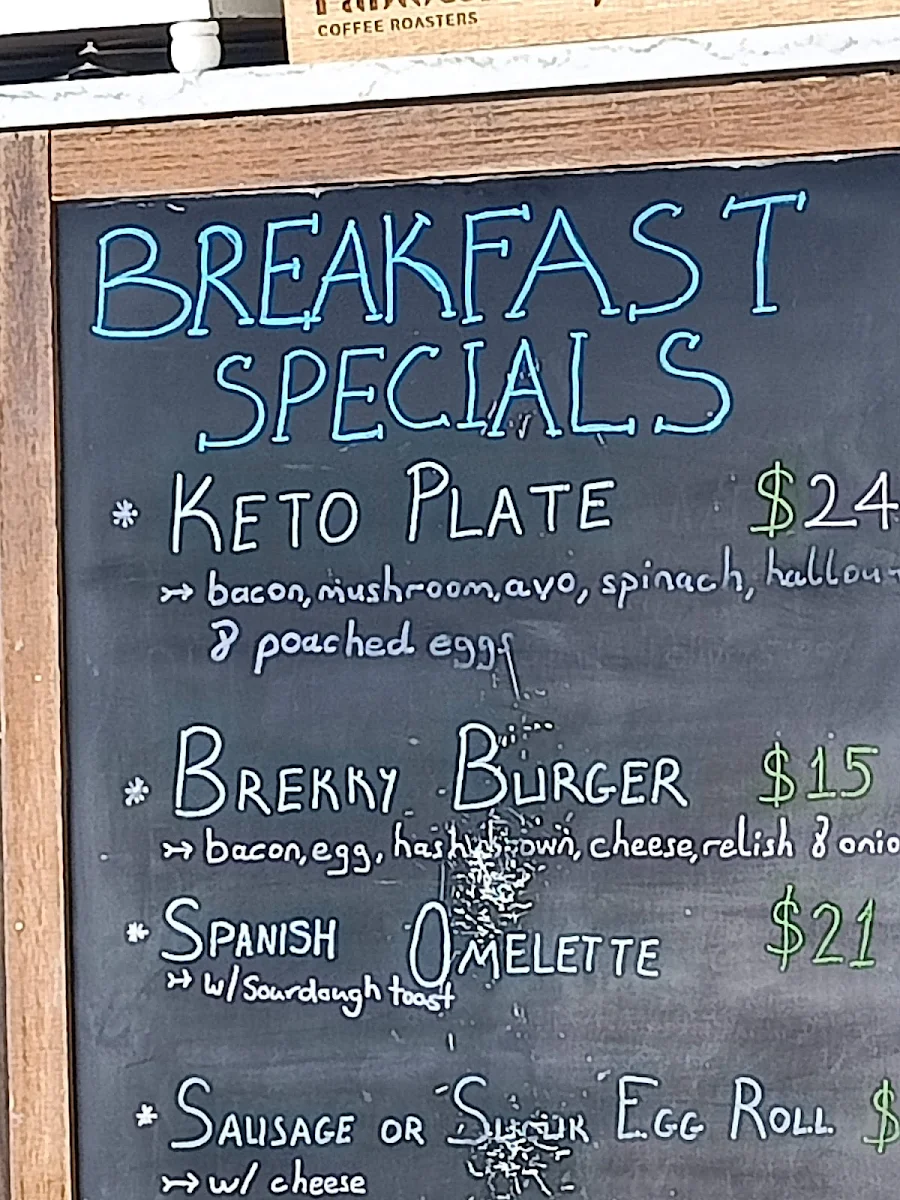 COFFEE ROASTERS
BREAKFAST
SPECIALS
* KETO PLATE $24
↣ bacon, mushroom, avo, spinach,
& poached eggs
* BREKKY BURGER $15
↣ bacon, egg, hashbrown, cheese, relish &
* SPANISH OMELETTE $21
↣ w/ Sourdough toast
* SAUSAGE OR SUCUK EGG ROLL $
↣ w/ cheese